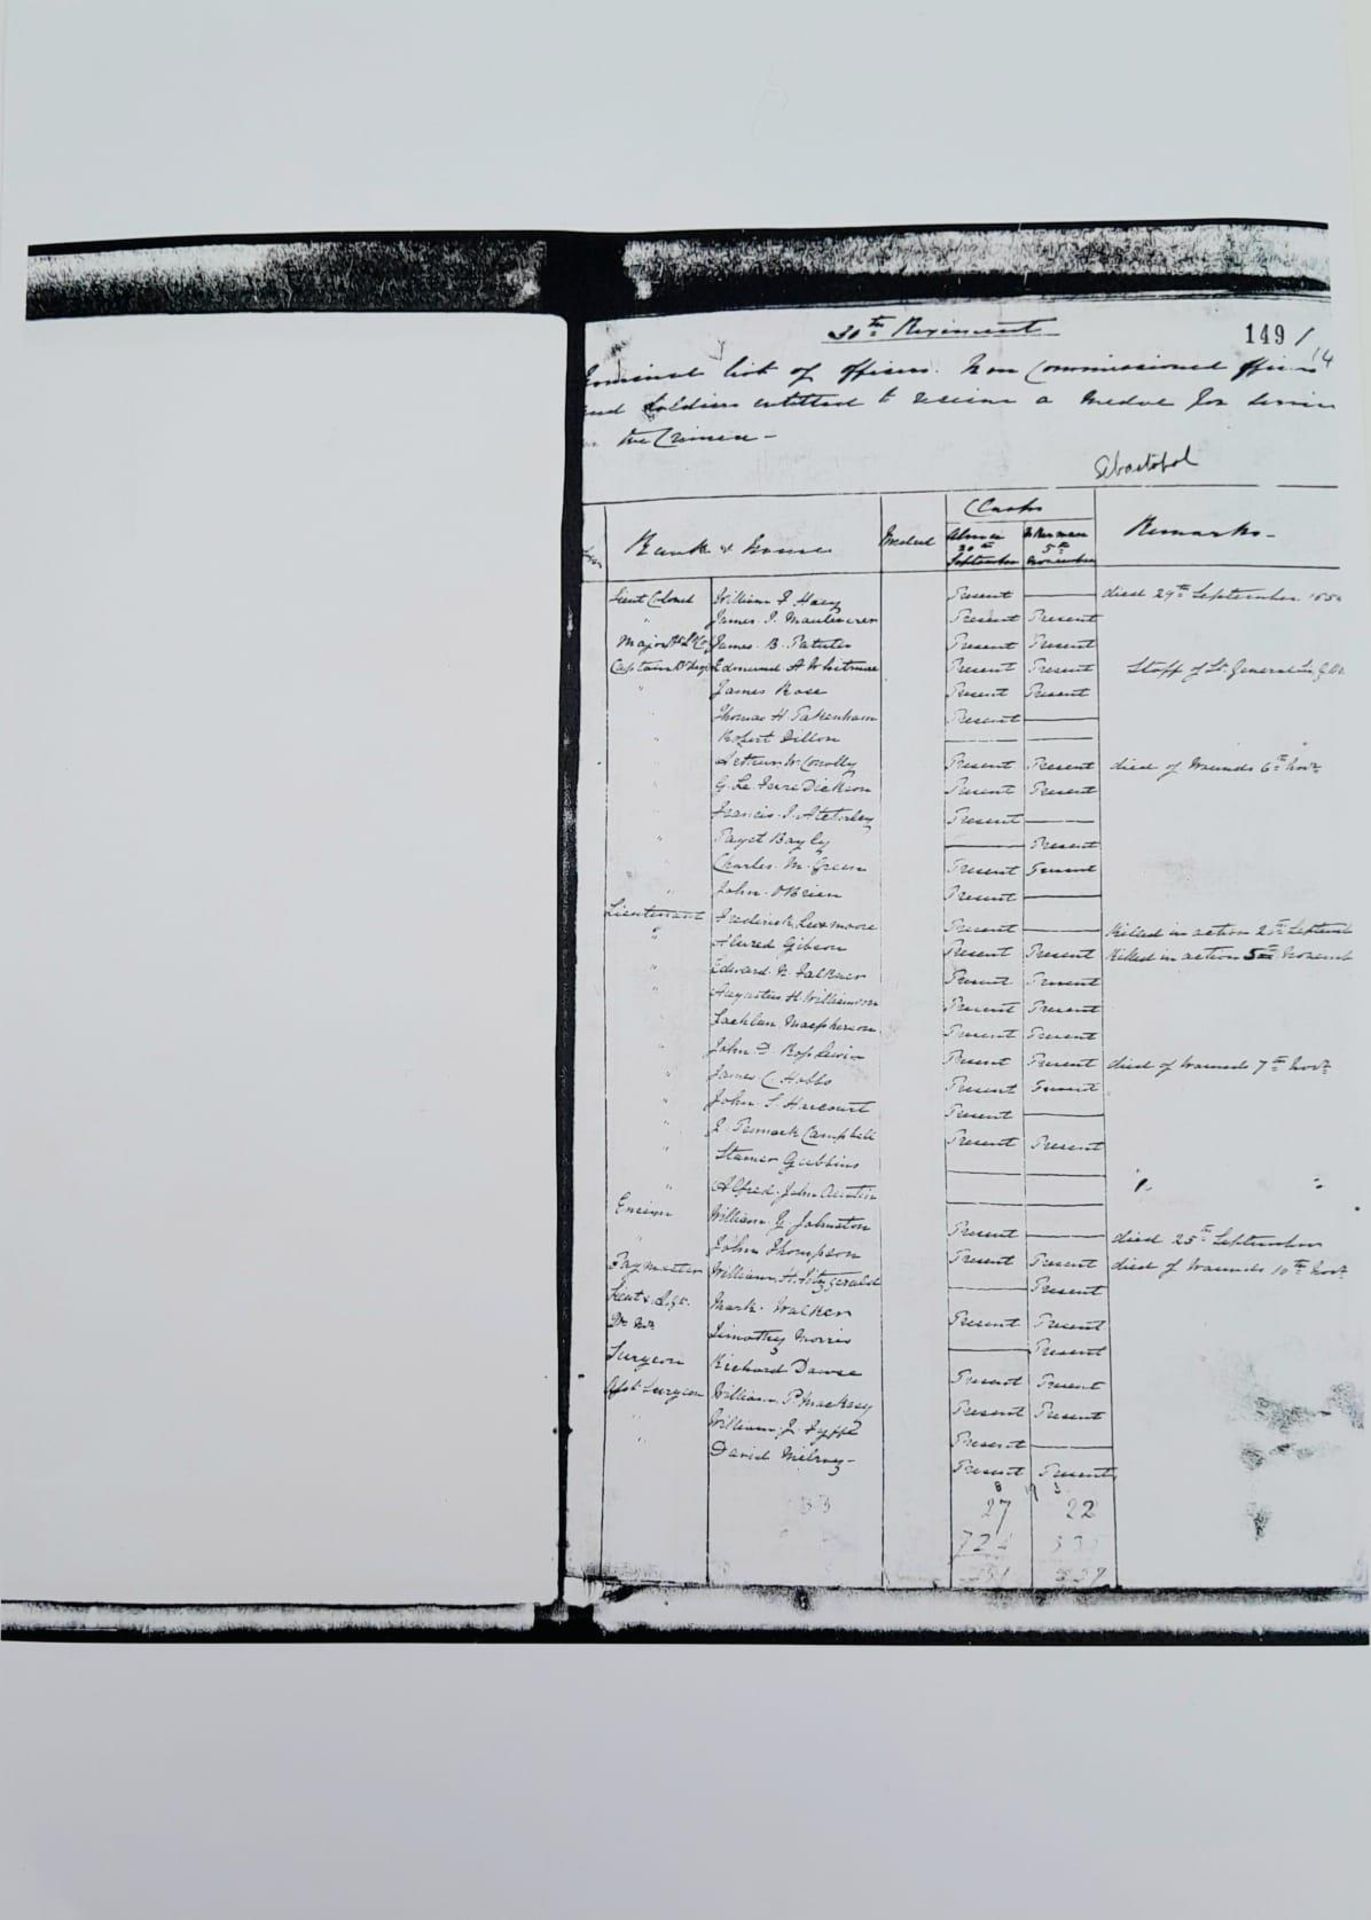 30th Regiment
149 /
14
Nominal list of Officers. Non Commissioned Officers
and Soldiers entitled to receive a Medal for Service
in the Crimea -
Sebastopol
Rank & Name Medal Clasps Remarks -
Alma 20th September Inkerman 5th November
Lieut Colonel William F Hoey Present died 29th September 185
" James T. Mauleverer Present Present
Major James B. Patullo Present Present
Captain Edmund A Whitmore Present Present Staff of Lt. General
" James Rose Present Present
Thomas H. Pakenham Present
" Robert Dillon
" Arthur W. Conolly Present Present died of Wounds 6th Novr
" G. Le Dickson Present Present
" Francis T. Atcherley Present
" Paget Bayly Present
" Charles M. Green Present Present
" John O'Brien Present
Lieutenant Frederick Luxmoore Present Killed in action 20th Septemb
" Alured Gibson Present Present Killed in action 5th Novemb
" Edward Falkner Present Present
" Augustus H. Williamson Present Present
Lachlan Macpherson Present Present
" John D Ross Lewin Present Present died of Wounds 7th Novr
" James C. Hobbs Present Present
" John S. Harcourt Present
" J. Campbell Present Present
" Stamer Gubbins
" Alfred John Austin
Ensign William G. Johnston Present died 25th September
" John Thompson Present Present died of Wounds 10th Novr
Paymaster William H. Fitzgerald Present
Lieut & Adjt. Mark Walker Present Present
Qr Mr Timothy Morris Present
Surgeon Richard Dawse Present Present
Asst. Surgeon William P. Mackesy Present Present
" William J. Fyffe Present
" David Milroy - Present Present
33 27 22